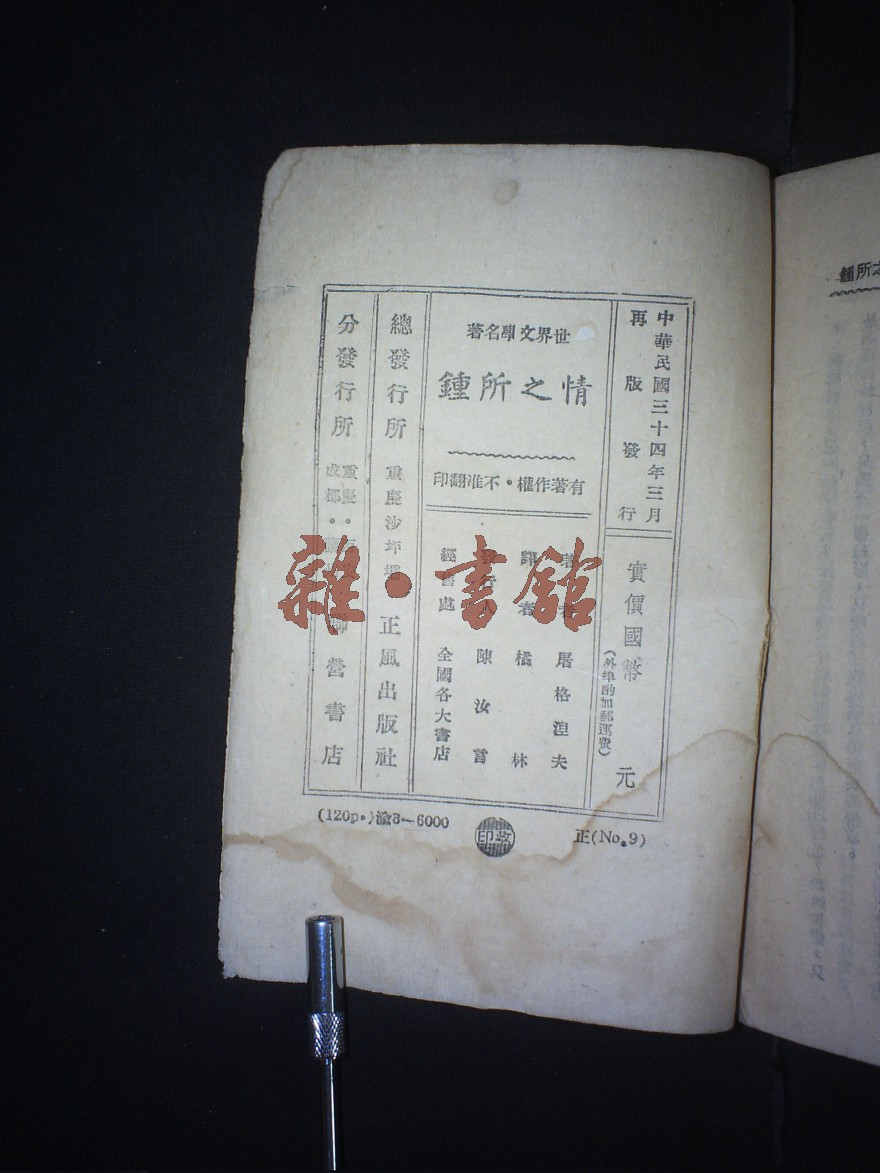 中華民國三十四年三月
再版發行
實價國幣 元
(外埠酌加郵運費)
世界文學名著
情之所鍾
有著作權・不准翻印
著者 屠格涅夫
譯者 橘林
發行人 陳汝言
經售處 全國各大書店
總發行所 重慶沙坪壩 正風出版社
分發行所 重慶・成都・聯營書店
(120p.)渝3—6000
正(No.9)
雜・書館
之所鍾